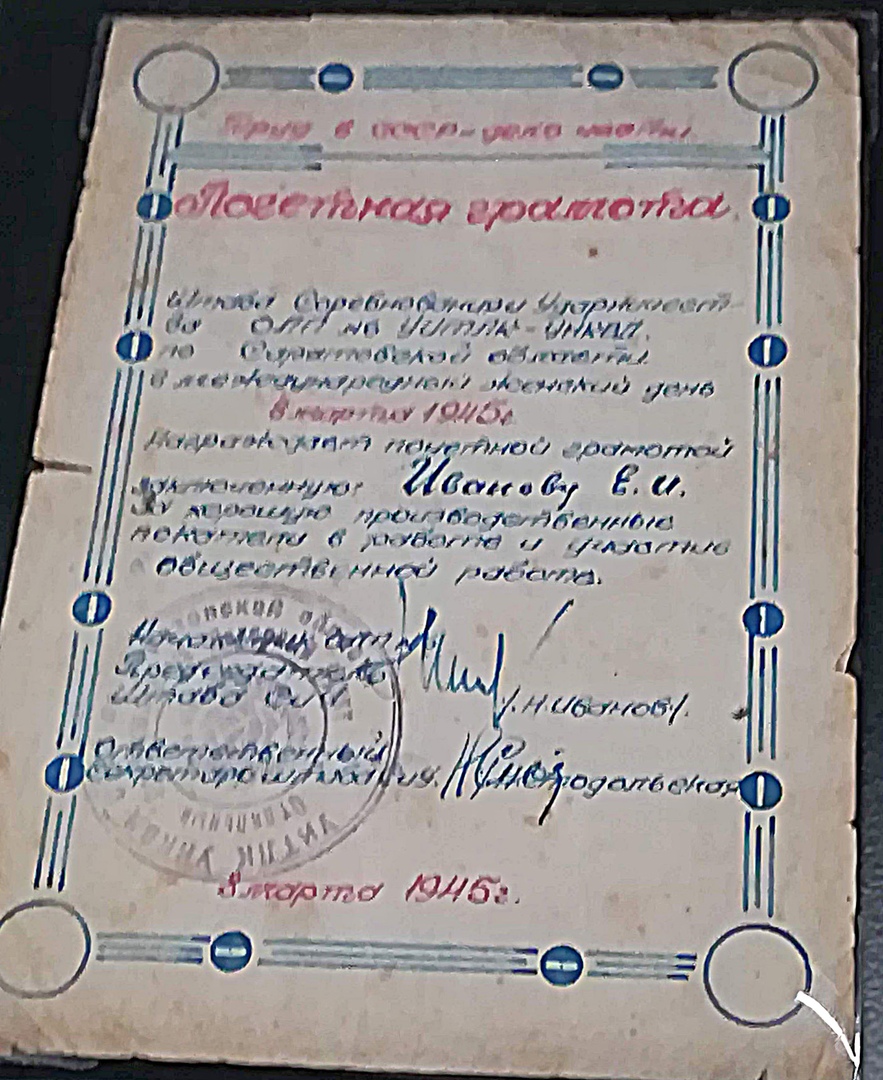 Труд в СССР - дело чести.
Почетная грамота.
Штаба Соревнования и Ударничест-
ва ОЛП УИТЛК-УНКВД.
по Саратовской области
в международный женский день
8 марта 1945г
Награждает почетной грамотой
заключенную: Иванову Е. И.
За хорошую производственные
показатели в работе и участие
общественной работе.
Начальник
Председатель
Штаба СиУ
/Н Иванов/.
Ответственный
секретарь штаба СиУ.
8 марта 1945г.